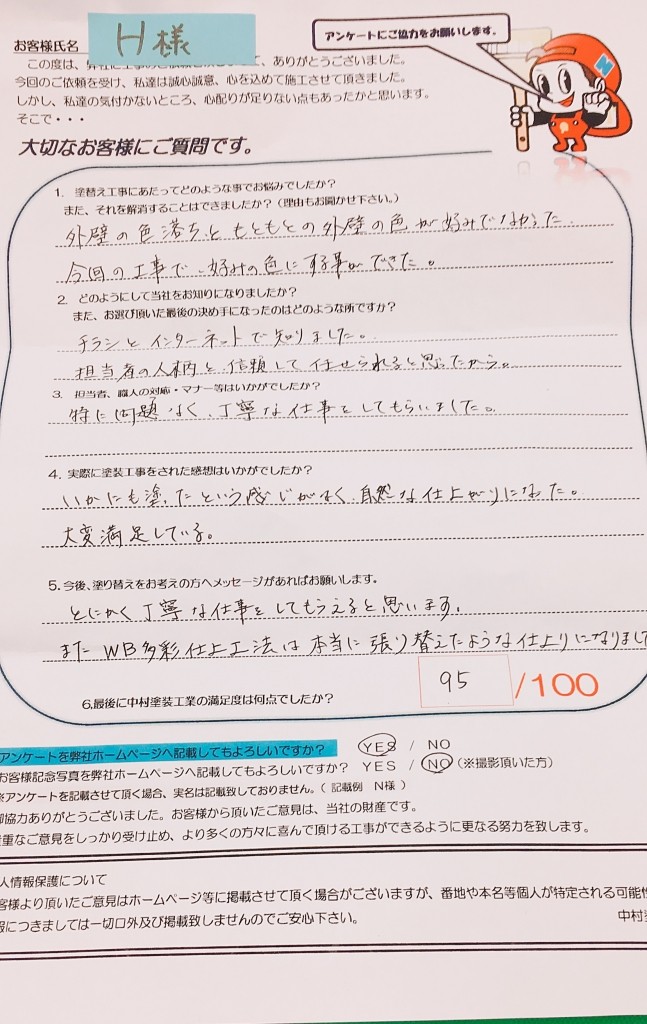 アンケートにご協力をお願いします。
お客様氏名
H様
この度は、弊社に工事のご依頼を いて、ありがとうございました。
今回のご依頼を受け、私達は誠心誠意、心を込めて施工させて頂きました。
しかし、私達の気付かないところ、心配りが足りない点もあったかと思います。
そこで・・・
大切なお客様にご質問です。
1. 塗替え工事にあたってどのような事でお悩みでしたか?
また、それを解消することはできましたか?(理由もお聞かせ下さい。)
外壁の色落ちともともとの外壁の色が好みでなかった。
今回の工事で、好みの色にする事ができた。
2. どのようにして当社をお知りになりましたか?
また、お選び頂いた最後の決め手になったのはどのような所ですか?
チラシとインターネットで知りました。
担当者の人柄と信頼して任せられると思ったから。
3. 担当者、職人の対応・マナー等はいかがでしたか?
特に問題なく、丁寧な仕事をしてもらいました。
4. 実際に塗装工事をされた感想はいかがでしたか?
いかにも塗ったという感じがなく、自然な仕上がりになった。
大変満足している。
5. 今後、塗り替えをお考えの方へメッセージがあればお願いします。
とにかく丁寧な仕事をしてもらえると思います。
また WB多彩仕上工法は本当に張り替えたような仕上りになりまし
6.最後に中村塗装工業の満足度は何点でしたか?
95 /100
アンケートを弊社ホームページへ記載してもよろしいですか? YES / NO
お客様記念写真を弊社ホームページへ記載してもよろしいですか? YES / NO (※撮影頂いた方)
※アンケートを記載させて頂く場合、実名は記載致しておりません。( 記載例 N様 )
御協力ありがとうございました。お客様から頂いたご意見は、当社の財産です。
重なご意見をしっかり受け止め、より多くの方々に喜んで頂ける工事ができるように更なる努力を致します。
人情報保護について
客様より頂いたご意見はホームページ等に掲載させて頂く場合がございますが、番地や本名等個人が特定される可能性
報につきましては一切口外及び掲載致しませんのでご安心下さい。
中村